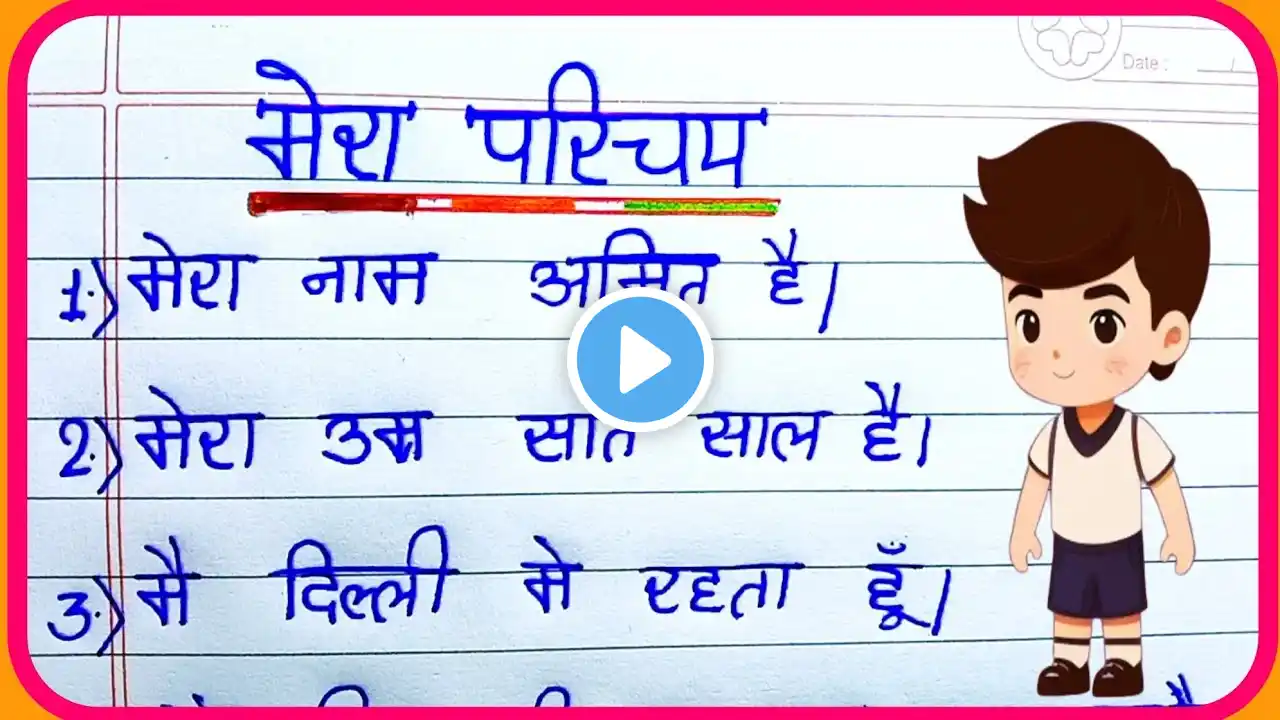 Date :
मेरा परिचय
1.) मेरा नाम अमित है।
2.) मेरा उम्र सात साल है।
3.) मै दिल्ली मे रहता हूँ।